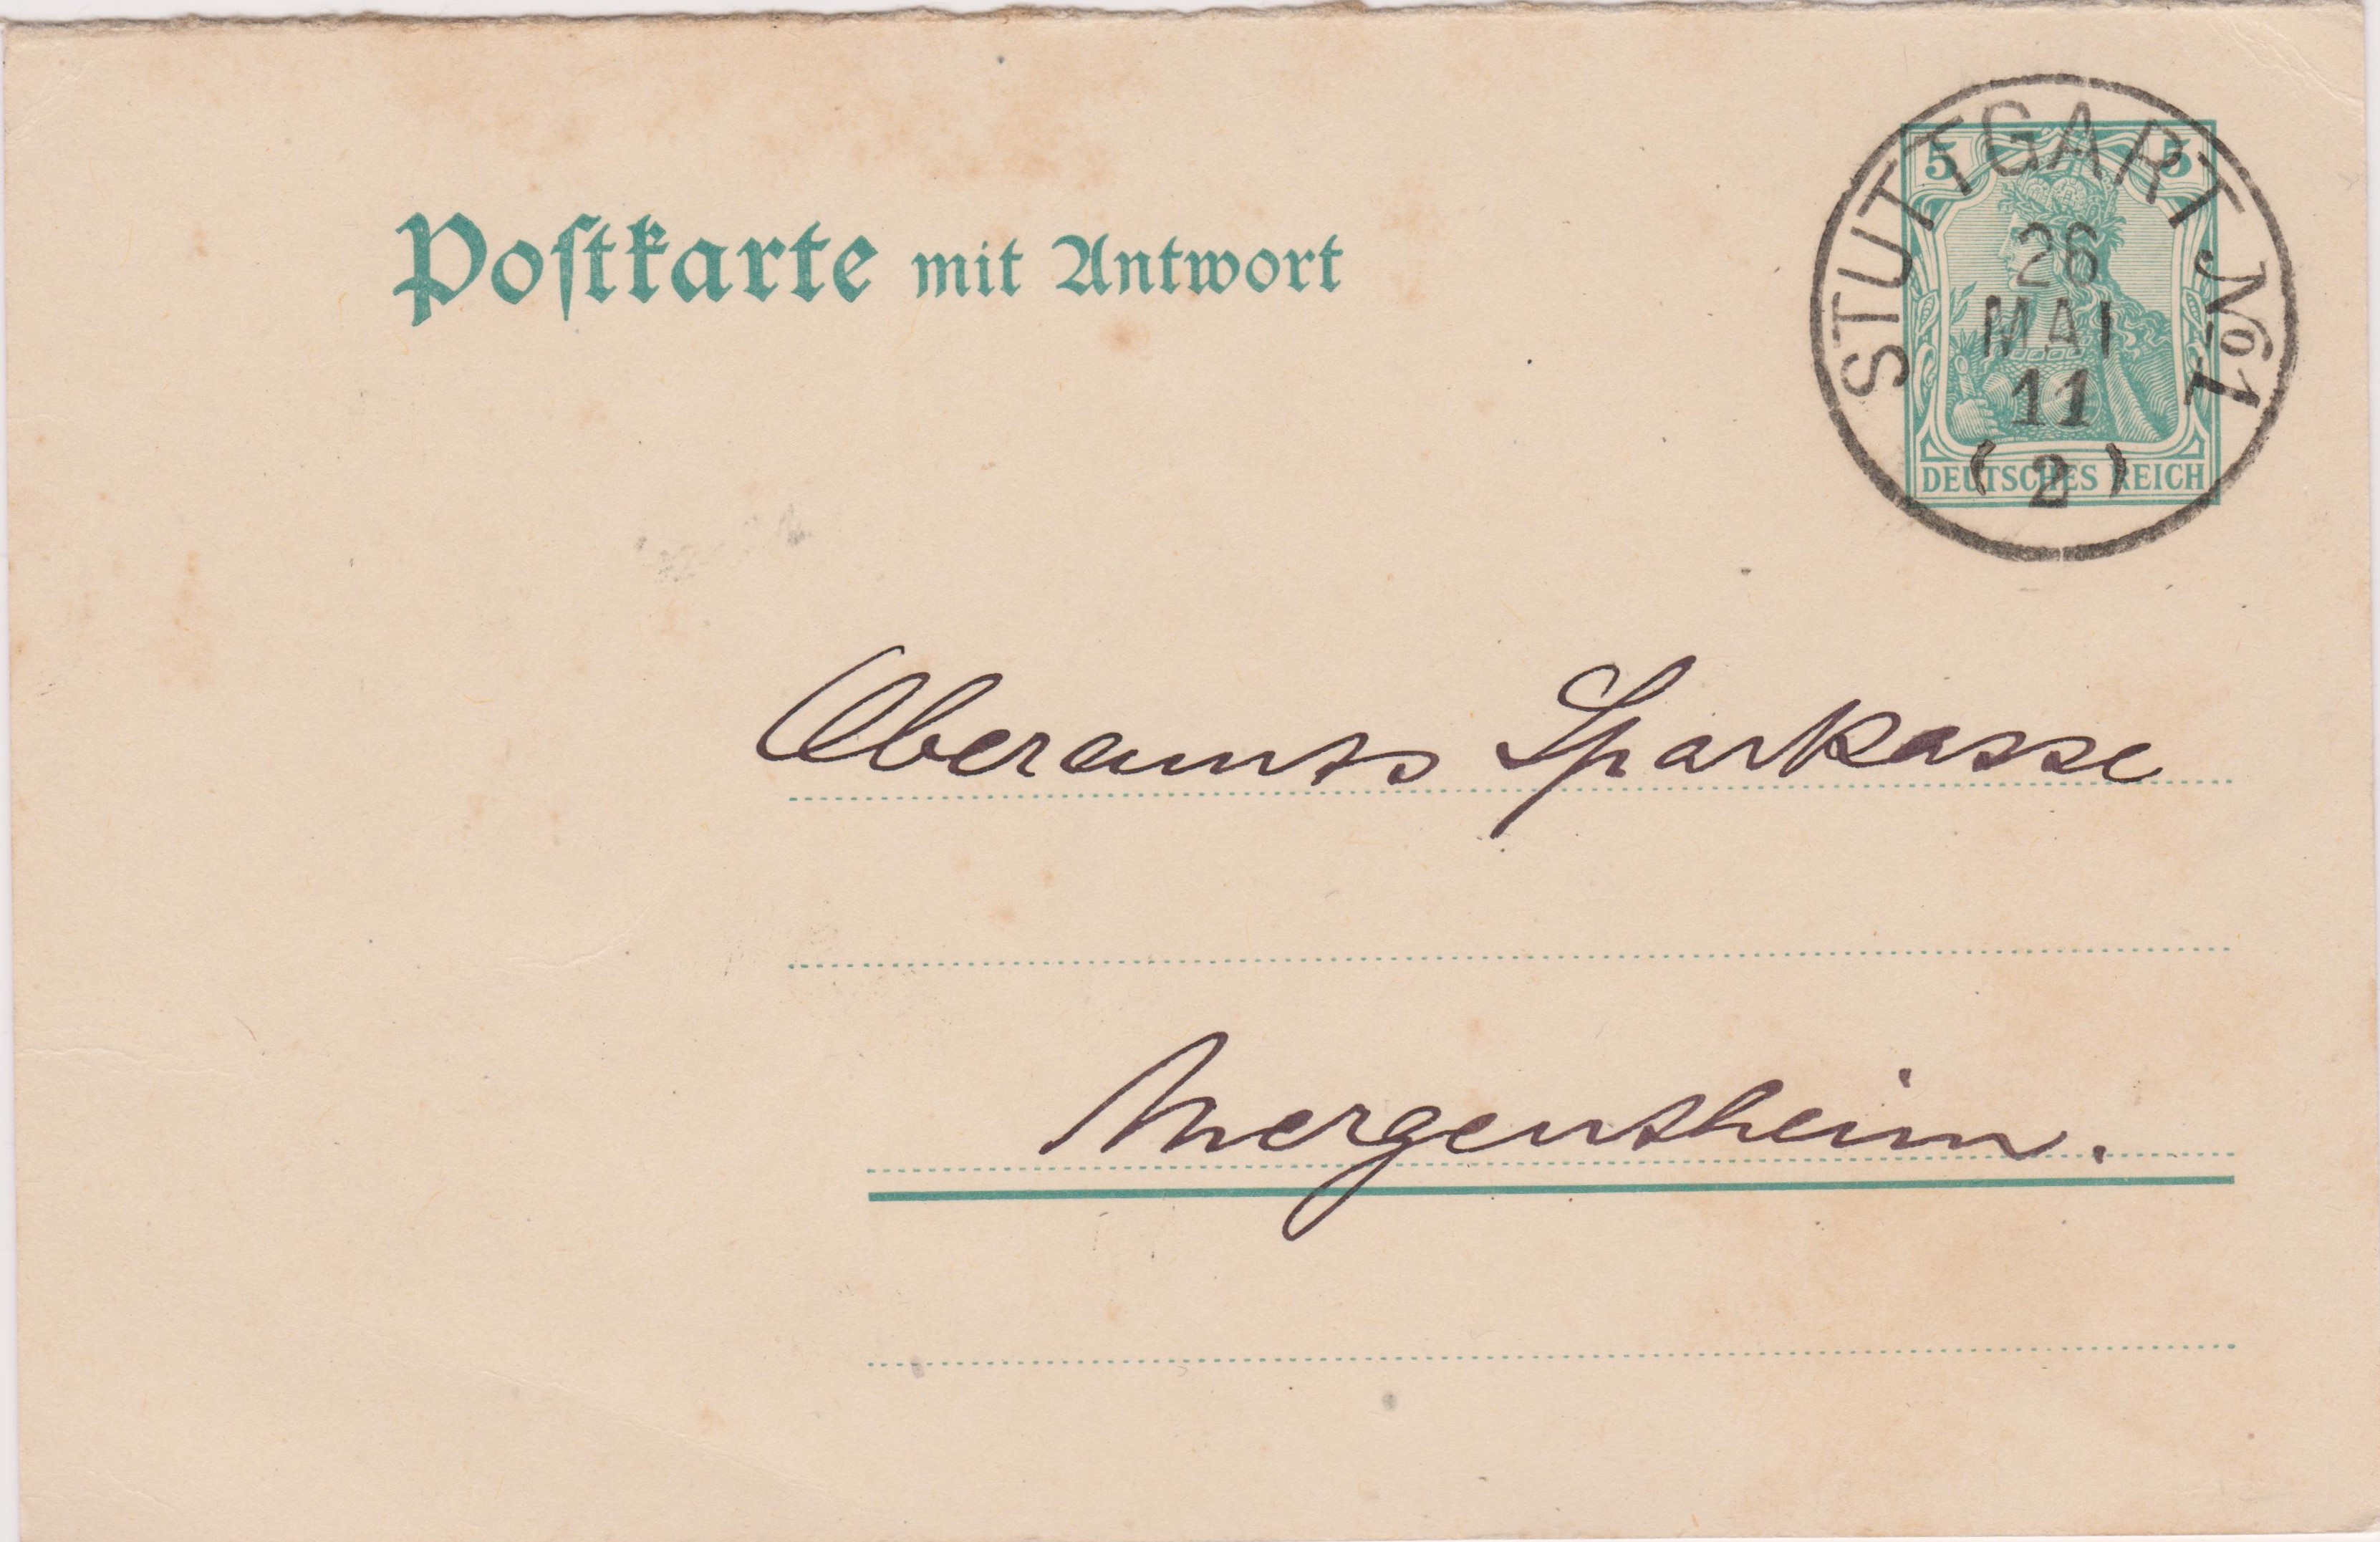 Postkarte mit Antwort
5 5
DEUTSCHES REICH
STUTTGART No 1
26
MAI
11
(2)
Oberamts Sparkasse
Mergentheim.